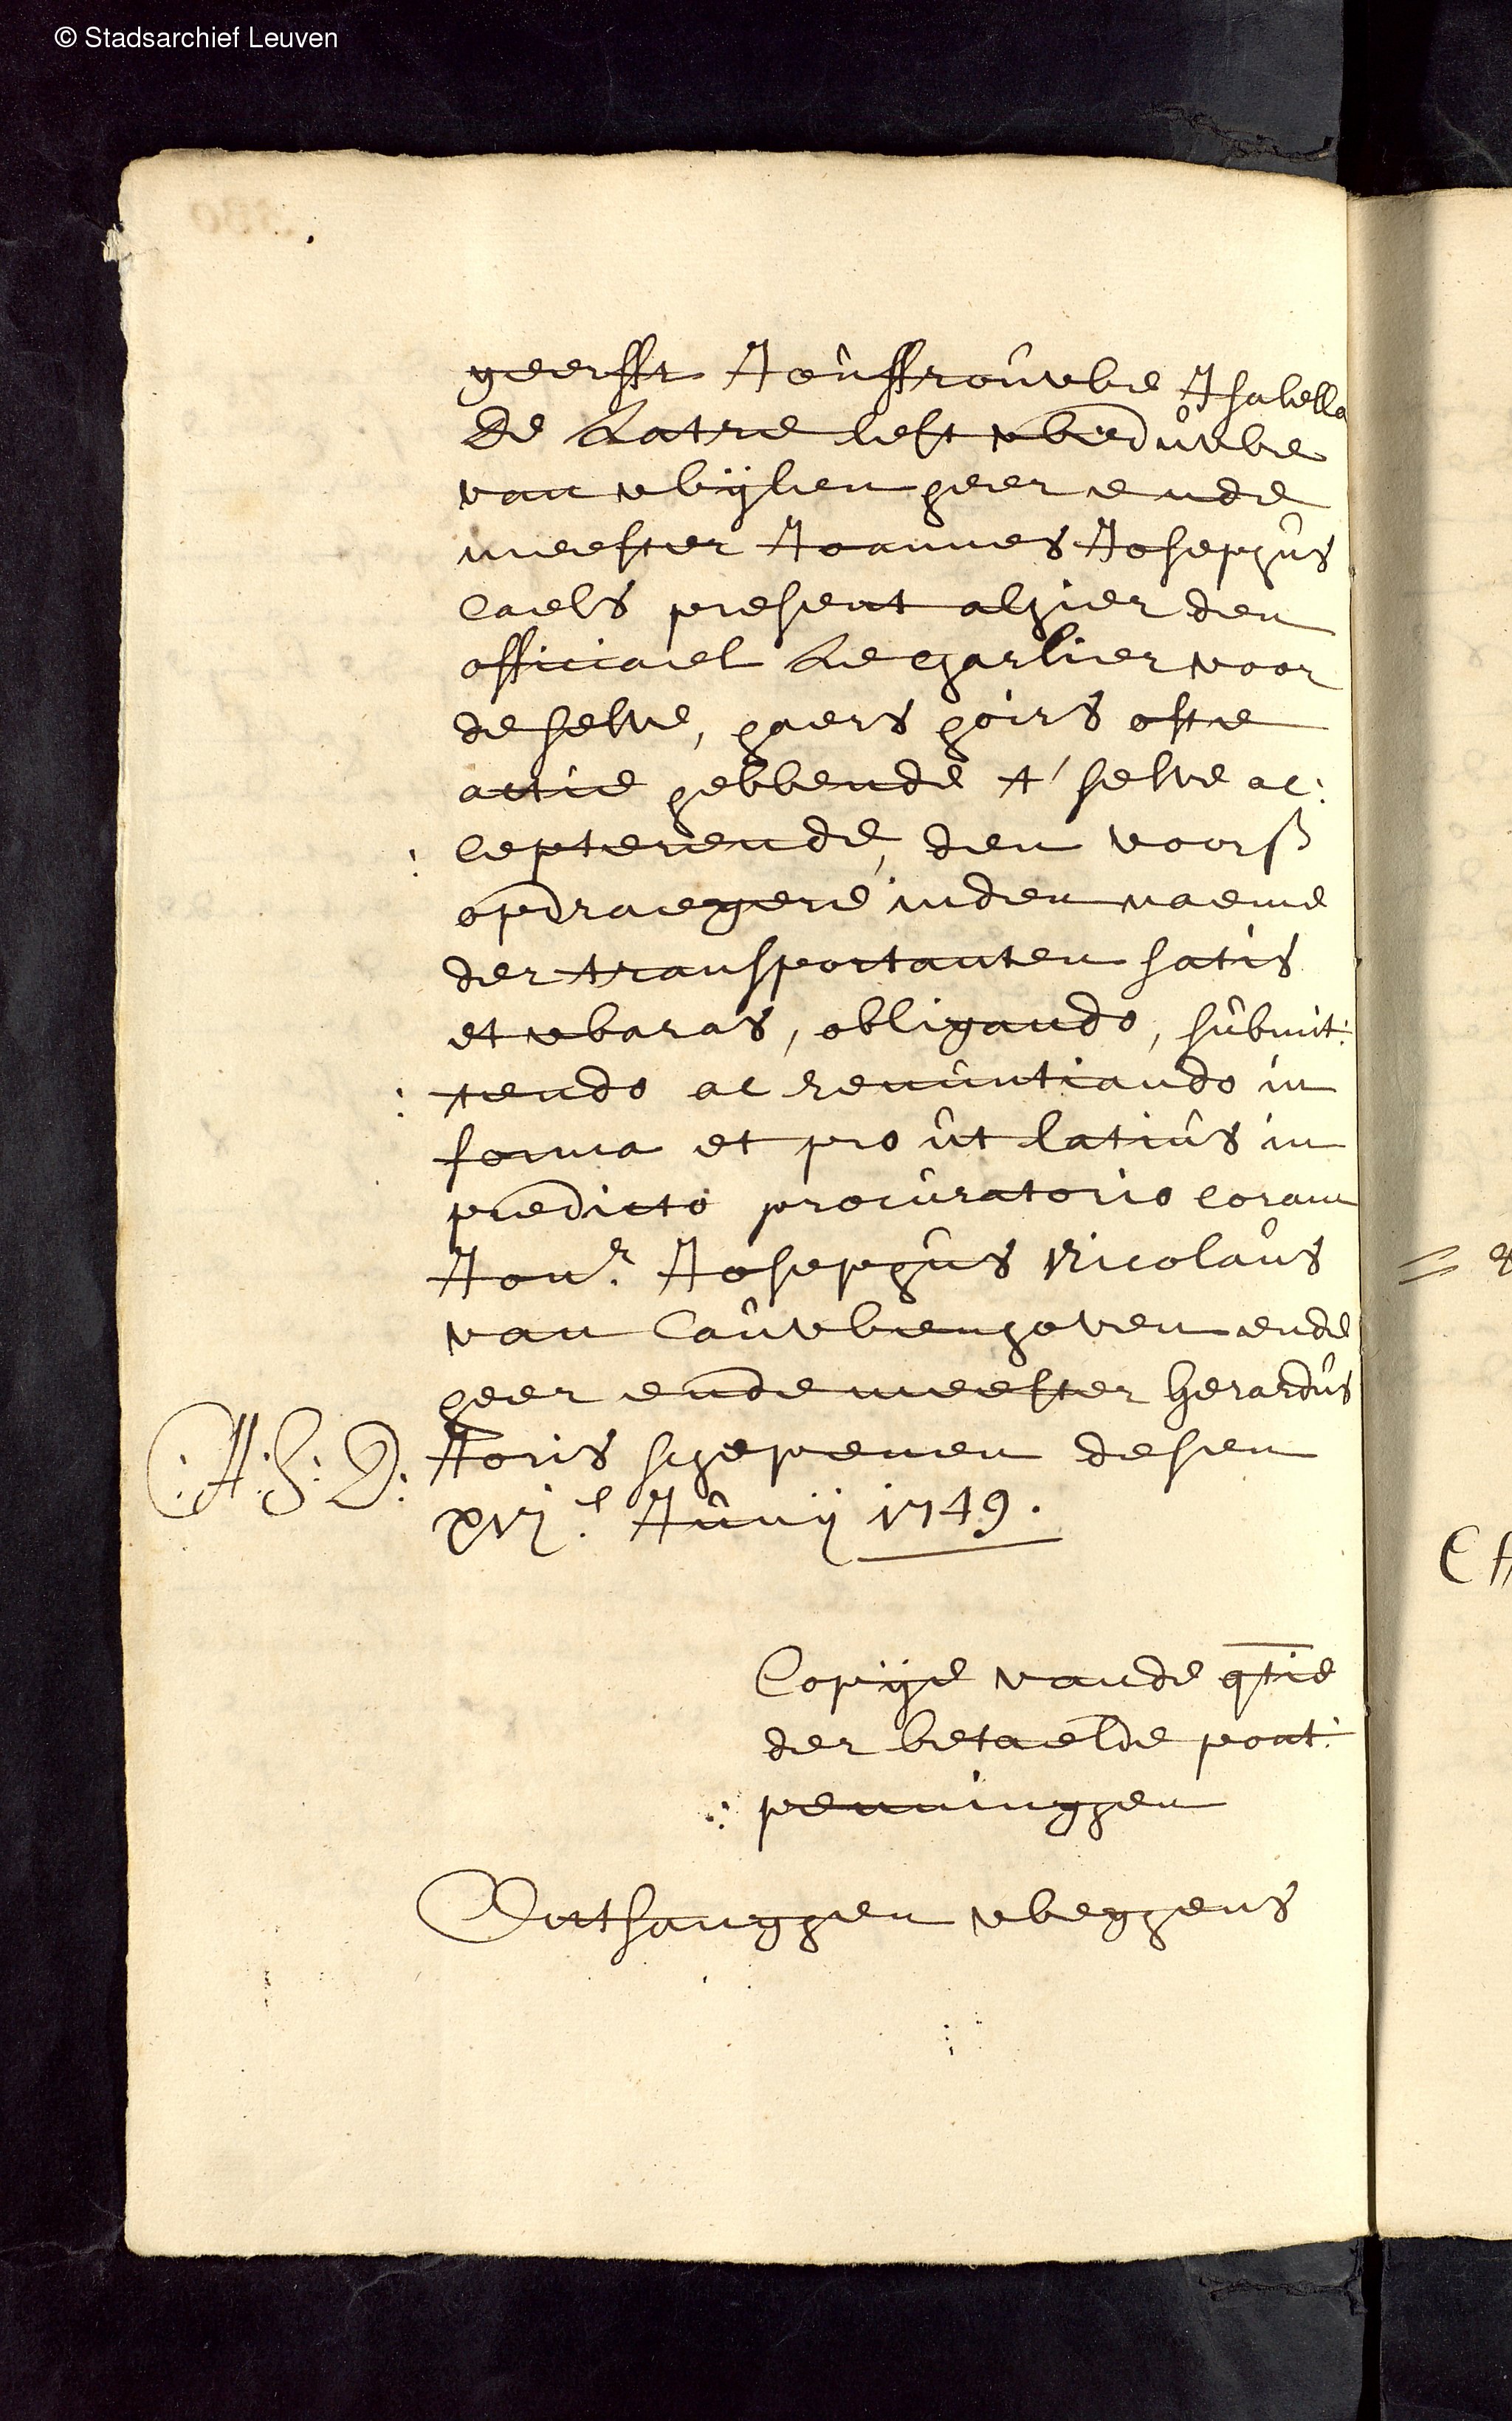 © Stadsarchief Leuven
geerfft Jouffrouwe Isabella
De Latre lest weduwe
van wijlen heer ende
meester Joannes Josephus
Caels present alhier den
officiael Le Charlier voor
de selve, haers hoirs ofte
actie hebbende t' selve ac:
:cepterende, den voorß
opdraegere inden naeme
der transportanten satis
et waras, obligando, submit:
:tendo ac renuntiando in
forma et pro ut latius in
predicto procuratorio coram
Jonr. Josephus Nicolaus
van Cauwenhoven ende
heer ende meester Gerardus
Joris schepenen desen
xvj.e Junij 1749.
Copije vande qtie
der betaelde pont:
:penninghen
Ontfanghen weghens